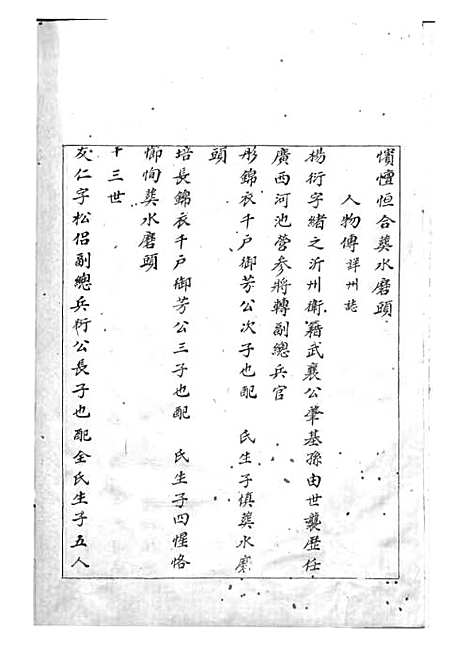 愩愷恒合葬水磨頭
人物傳詳州誌
楊衍字緒之沂州衛籍武襄公肇基孫由世襲歷任
廣西河池營參將轉副總兵官
彤錦衣千户御芳公次子也配 氏生子慎葬水磨
頭
培長錦衣千户御芳公三子也配 氏生子四惺恪
恂葬水磨頭
十三世
友仁字松侶副總兵衍公長子也配全氏生子五人